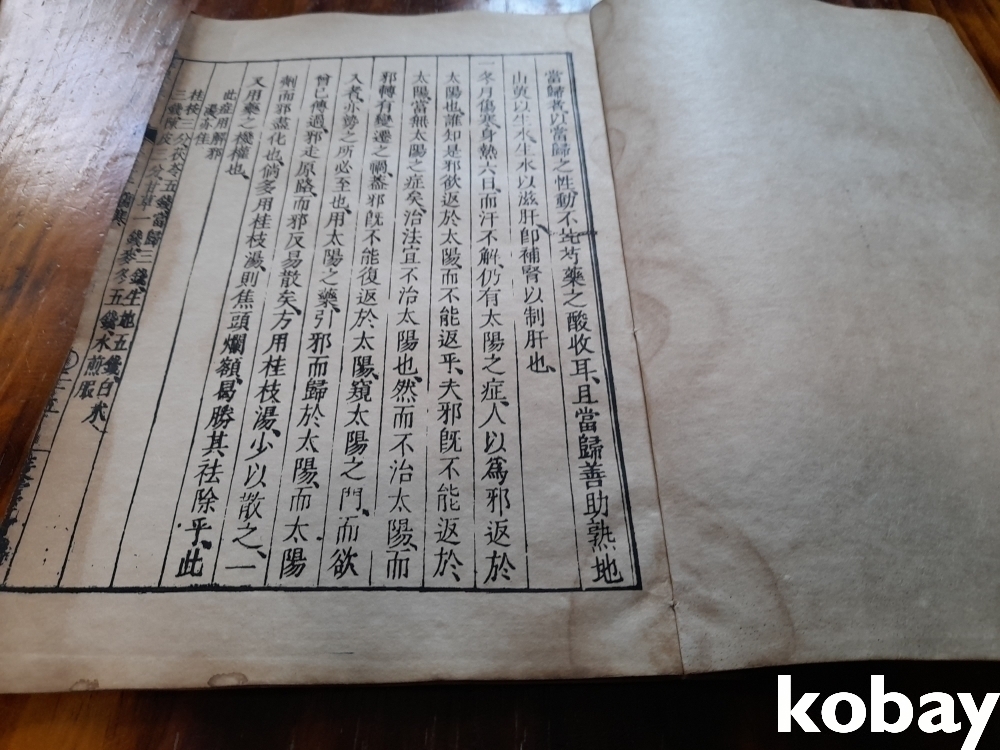 當歸者以當歸之性動不比芍藥之酸收耳且當歸善助熟地
山萸以生水生水以滋肝卽補腎以制肝也
一冬月傷寒身熱六日而汗不解仍有太陽之症人以爲邪返於
太陽也誰知是邪欲返於太陽而不能返乎夫邪旣不能返於
太陽當無太陽之症矣治法宜不治太陽也然而不治太陽而
邪轉有變遷之禍蓋邪旣不能復返於太陽窺太陽之門而欲
入者亦勢之所必至也用太陽之藥引邪而歸於太陽而太陽
曾已傳過邪走原路而邪反易散矣方用桂枝湯少以散之一
劑而邪盡化也倘多用桂枝湯則焦頭爛額曷勝其祛除乎此
又用藥之機權也
此症用解邪
湯亦佳
桂枝三分茯苓五錢當歸三錢生地五錢白朮
三錢陳皮三分甘草一錢麥冬五錢水煎服
kobay